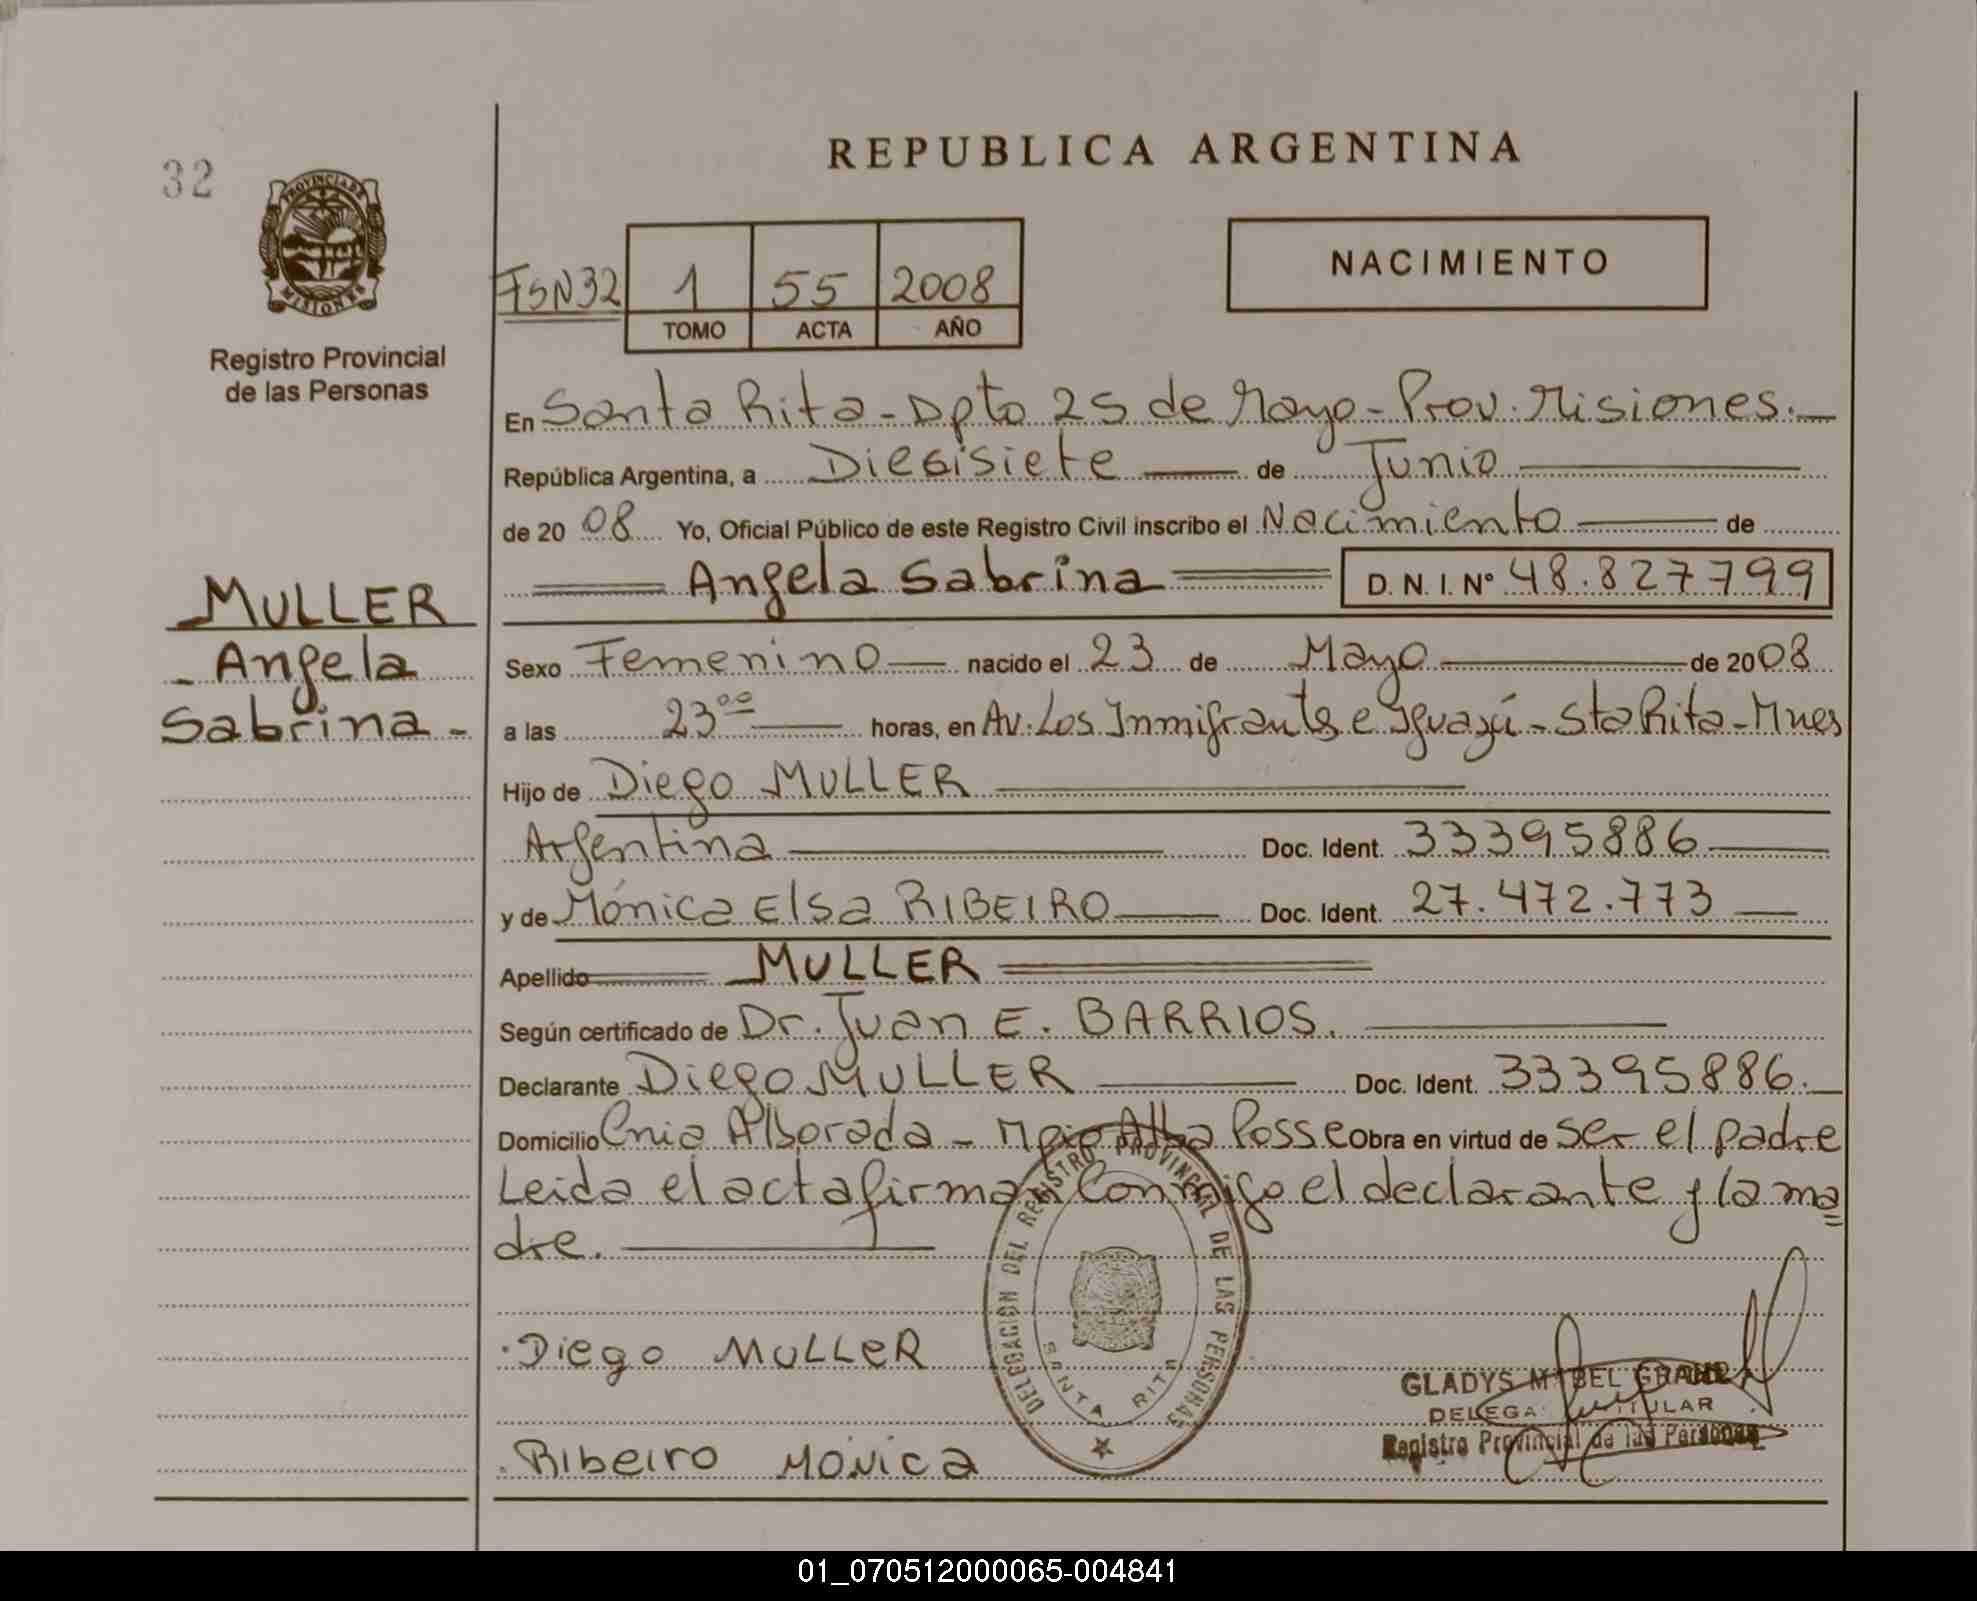 32
PROVINCIA DE
MISIONES
Registro Provincial
de las Personas
MULLER
- Angela
Sabrina -
REPUBLICA ARGENTINA
FSN32 1 55 2008
TOMO ACTA AÑO
NACIMIENTO
En Santa Rita - Dpto 25 de Mayo - Prov. Misiones.
República Argentina, a Diesisiete de Junio
de 20 08 Yo, Oficial Público de este Registro Civil inscribo el Nacimiento de
Angela Sabrina D. N. I. N° 48.827799
Sexo Femenino nacido el 23 de Mayo de 2008
a las 23 oo horas, en Av. Los Inmigrantes e Iguazú - Sta Rita - Mnes
Hijo de Diego MULLER
Argentina Doc. Ident. 33395886
y de Mónica Elsa RIBEIRO Doc. Ident. 27.472.773
Apellido MULLER
Según certificado de Dr. Juan E. BARRIOS.
Declarante Diego MULLER Doc. Ident. 33395886.
Domicilio Cnia Alborada - Mpio Alba Posse Obra en virtud de ser el padre
Leida el acta firman Conmigo el declarante y la ma=
dre.
DELEGACION DEL REGISTRO PROVINCIAL DE LAS PERSONAS
SANTA RITA
Diego MULLER
Ribeiro Mónica
GLADYS MABEL
DELEGADA TITULAR
Registro Provincial de las Personas
01_070512000065-004841